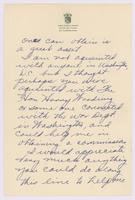 Once can obtain is
a great asset
I am not aquainted
with anyone in Washington
D.C. but I thought
perhaps you were
aquainted with The
Hon. Harry Woodring
or some one connected
with the war Dept
in Washington and
could help me in
obtaining a commission
I would appreciate
very much anything
you could do along
this line to help me